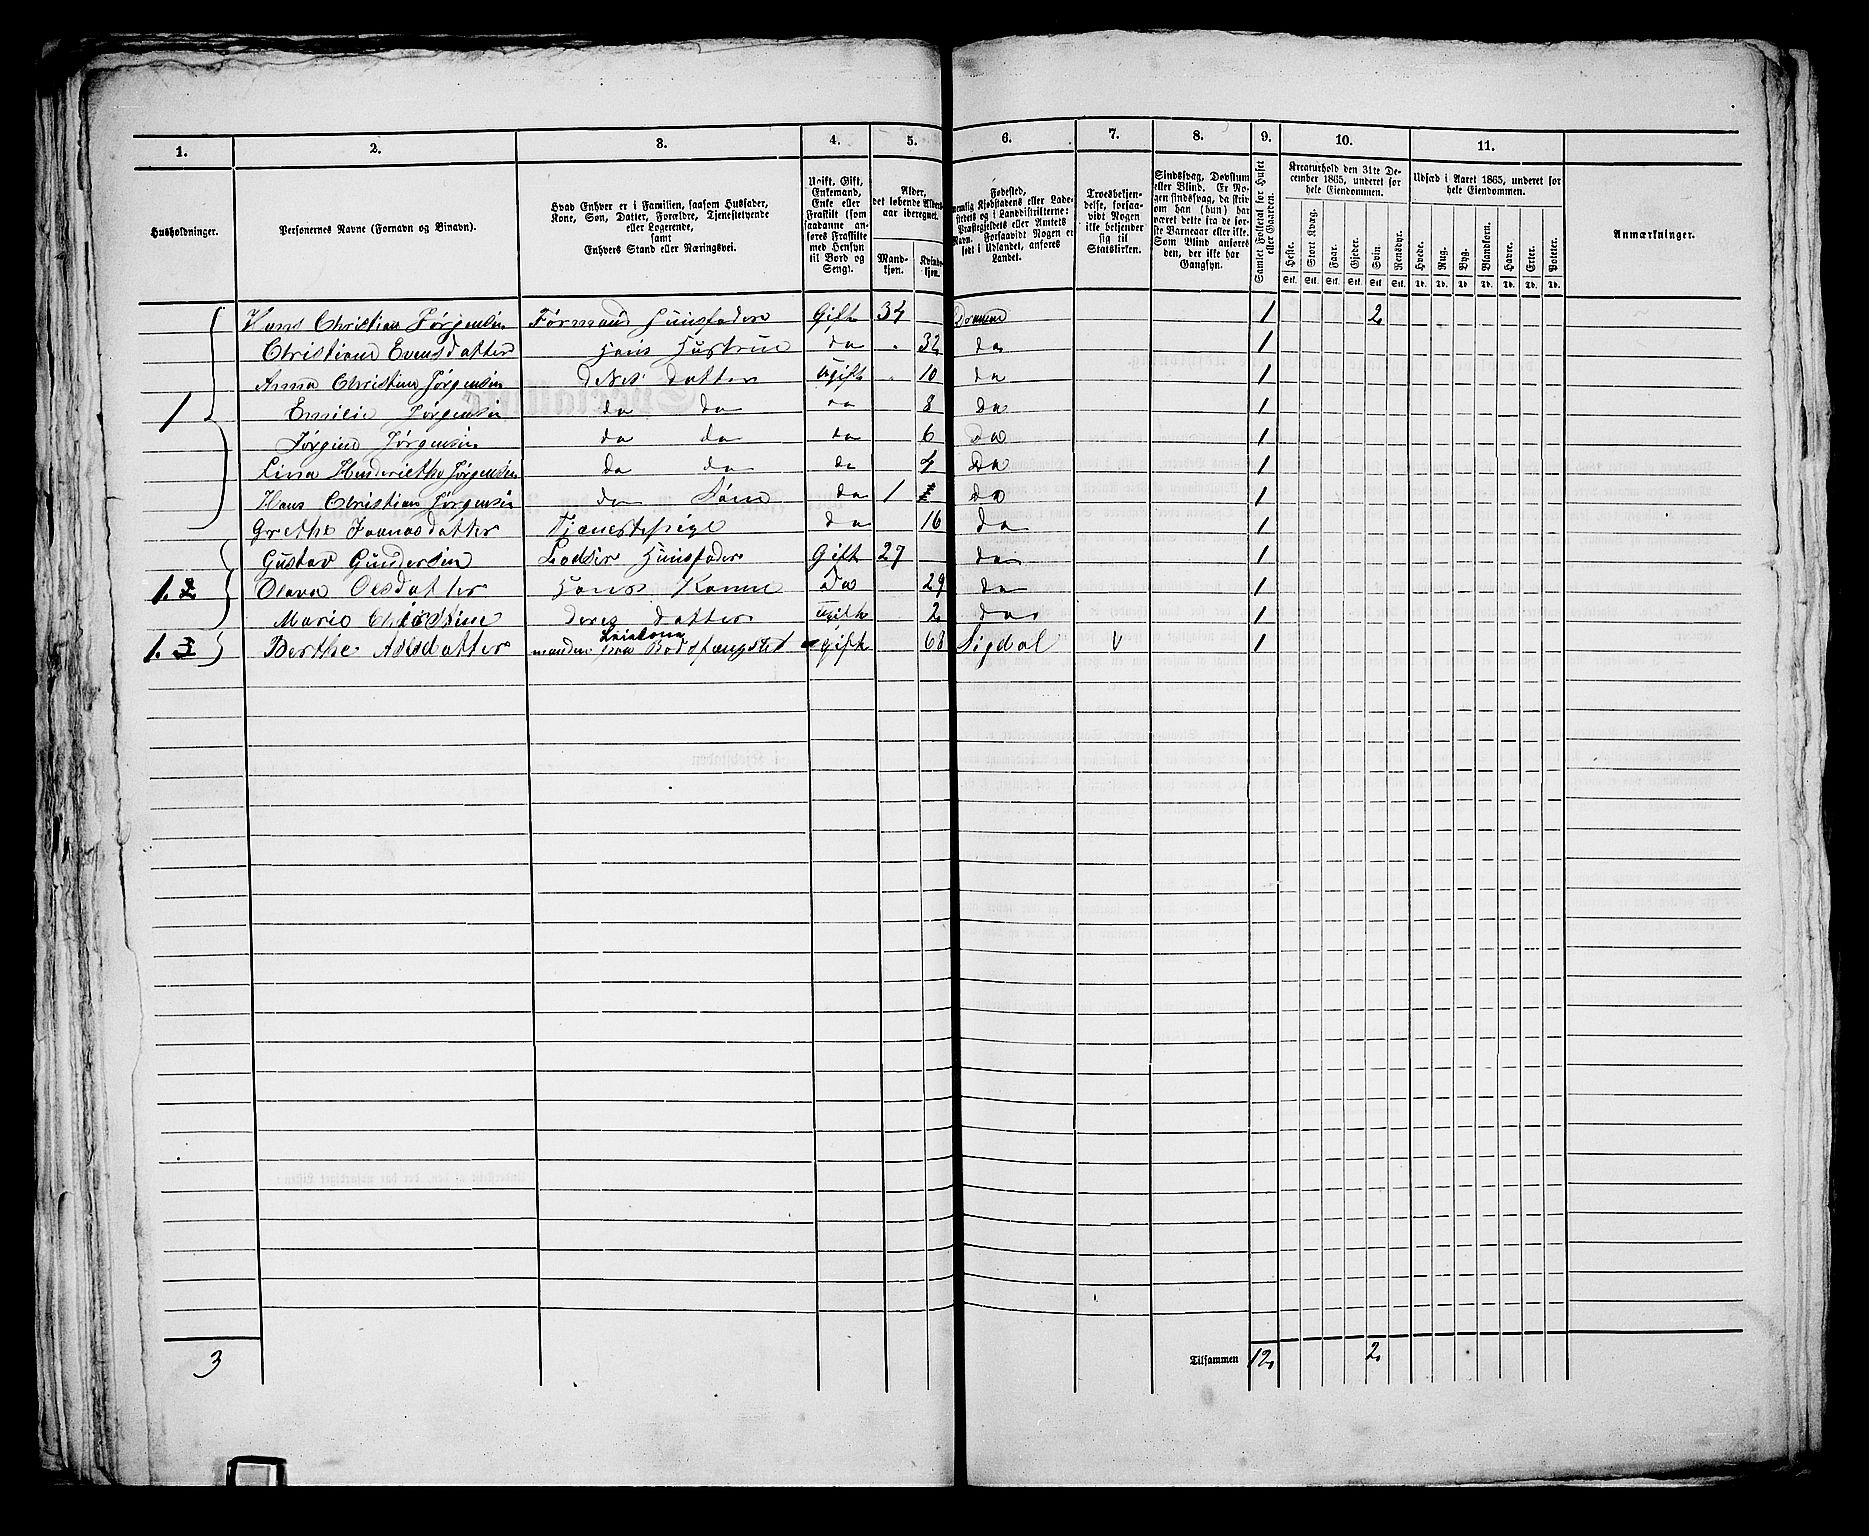 1. 2. 3. 4. 5. 6. 7. 8. 9. 10. 11.
Husholdninger.
Personernes Navne (Fornavn og Binavn).
Hvad Enhver er i Familien, saasom Husfader,
Kone, Søn, Datter, Forældre, Tjenestetyende
eller Logerende,
samt
Enhvers Stand eller Næringsvei.
Ugift, Gift,
Enkemand,
Enke eller
Fraskilt (som
saadanne an-
føres Fraskilte
med Hensyn
til Bord og
Seng).
Alder,
det løbende Alders-
aar iberegnet.
Mand-
kjøn.
Kvinde-
kjøn.
Fødested,
nemlig Kjøbstadens eller Lade-
stedets og i Landdistrikterne:
Præstegjeldets eller Amtets
Navn. Forsaavidt Nogen er
født i Udlandet, anføres
Landet.
Troesbekjen-
delse, forsaa-
vidt Nogen
ikke bekjender
sig til
Statskirken.
Sindssvag, Døvstum
eller Blind. Er No-
gen sindssvag, da skrives
om han (hun) har
været dette fra de før-
ste Barneaar eller ikke.
Som Blind anføres
den, der ikke har
Gangsyn.
Samlet Folketal for Huset
eller Gaarden.
Kreaturhold den 31te De-
cember 1865, underet for
hele Eiendommen.
Heste. Stort Kvæg. Faar. Gjeder. Svin. Rensdyr.
Stk. Stk. Stk. Stk. Stk. Stk.
Udsæd i Aaret 1865, underet for
hele Eiendommen.
Hvede. Rug. Byg. Blandkorn. Havre. Erter. Poteter.
Td. Td. Td. Td. Td. Td. Td.
Anmærkninger.
Hans Christian Jørgensen Formand Huusfader Gift 34 Dramme 1 2
Christiane Evensdatter Hans Hustrue do 32 do 1
Anna Christine Jørgensen deres datter Ugift 10 do 1
1 Emilie Jørgensen do do do 8 do 1
Jørgine Jørgensen do do do 6 do 1
Lina Henderiethe Jørgensen do do do 4 do 1
Hans Christian Jørgensen do Søn do 1 do 1
Grethe Joenasdatter Tjenestepige do 16 do 1
Gustav Gundersen Lodser Huusfader Gift 27 do 1
1. 2 Olava Olsdatter Hans Konne do 29 do 1
Marie Christine deres datter Ugift 2 do 1
1. 3 Berthe Aslsdatter manden paa Bodsfængslet gift 68 Sigdal V 1
3 Tilsammen 12 2